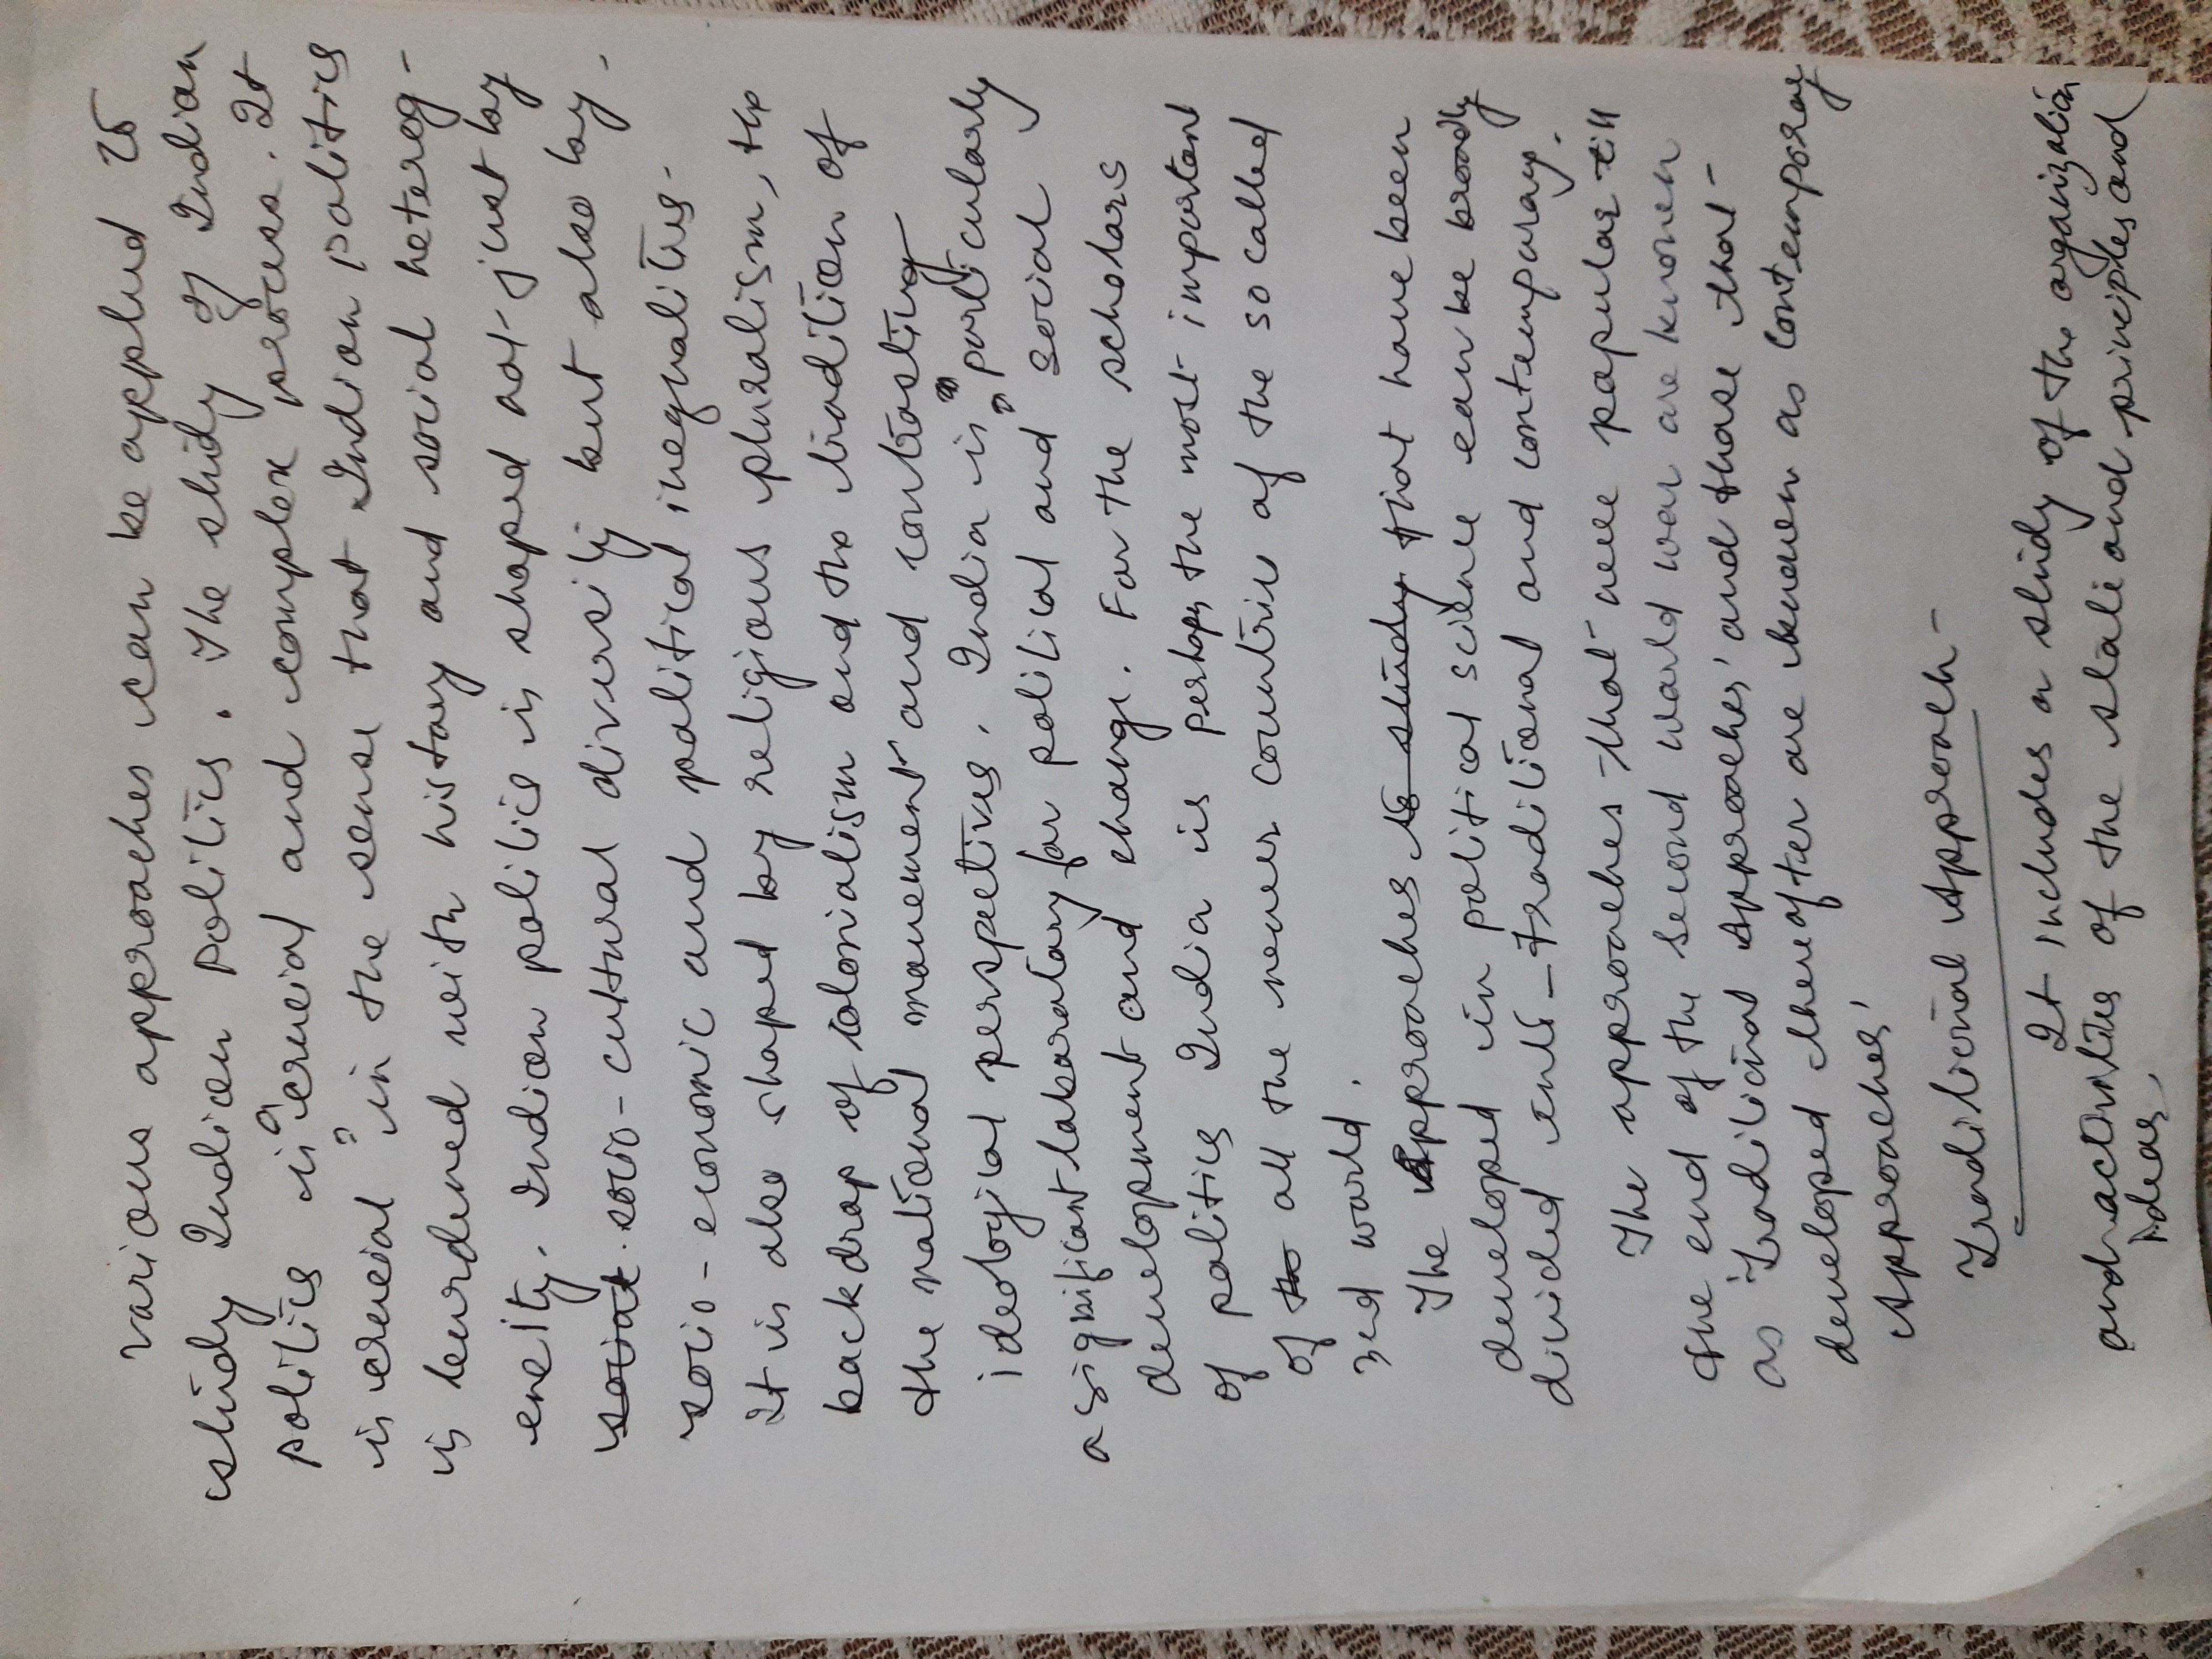 Various approaches can be applied to
study Indian politics. The study of Indian
politics is "crucial and complex process. It
is crucial" in the sense that Indian politics
is burdened with history and social heterog-
eneity. Indian politics is shaped not just by
social socio-cultural diversity but also by
socio-economic and political inequalities.
It is also shaped by religious pluralism, the
backdrop of colonialism and the tradition of
the national movement and contasting
ideological perspectives. India is "particularly
a significant labaratary for political and social
development and change. For the scholars
of politics India is perhaps the most important
of the all the newer countries of the so called
3rd world.
The Approaches to study that have been
developed in political science can be broadly
divided into - traditional and contemporary.
The approaches that were popular till
the end of the second world war are known
as 'Traditional Approaches' and those that
developed thereafter are known as contemporay
Approaches'
Traditional Approach -
It includes a study of the organization
and activities of the state and principles and
Ideas,